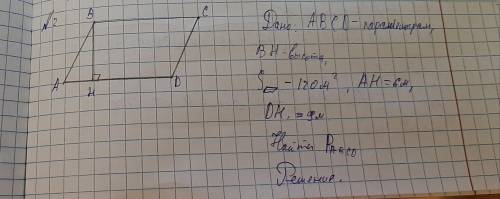 №2
B
C
A
H
D
Дано: ABCD-параллелограм,
BH-высота,
S▱ - 120 м², AH=6м,
DH = 9м
Найти PABCD
Решение.